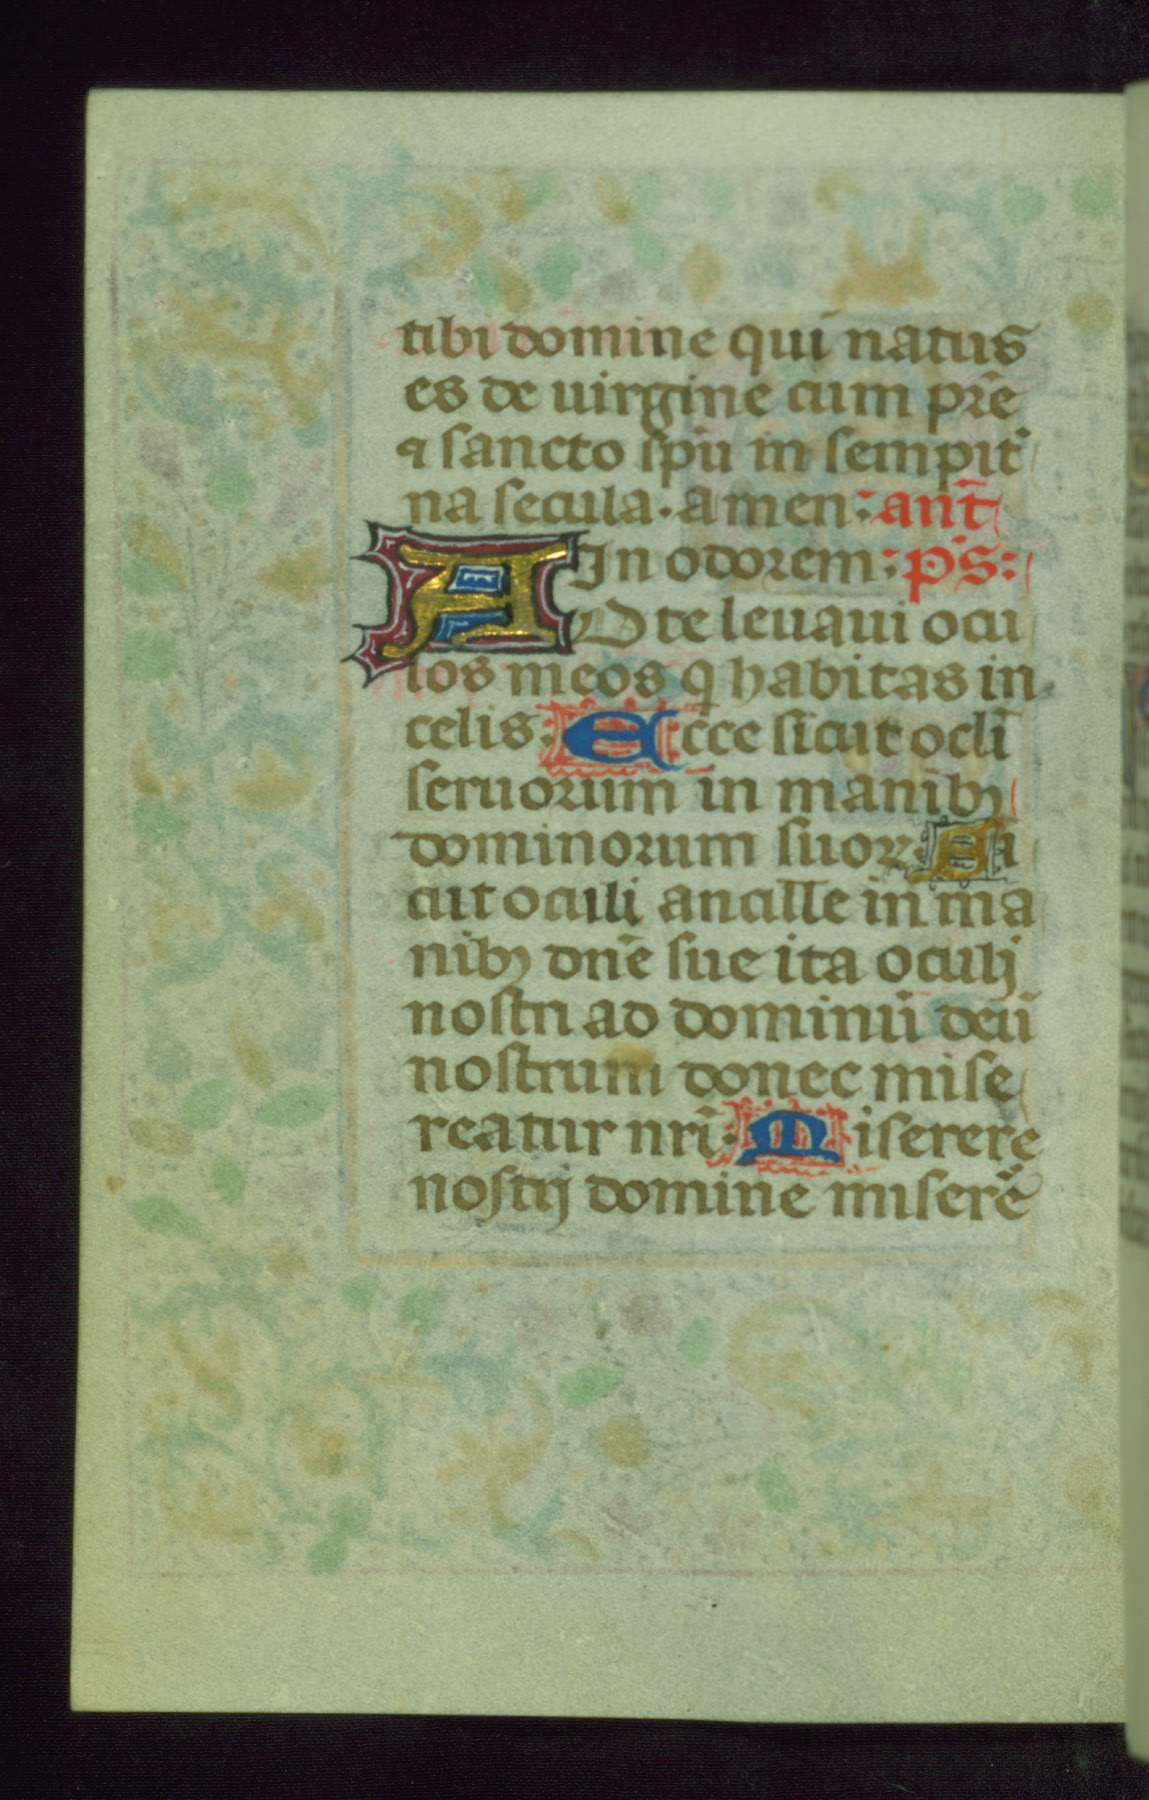 tibi domine qui natus
es de uirgine cum pr̄e
⁊ sancto sp̄u in sempit᷑
na secula. amen: ant̄
In odorem: p̄s:
AD te leuaui ocu
los meos q̄ habitas in
celis: Ecce sicut ocl̄i
seruorum in manibꝫ
dominorum suoꝝ. Si
cut oculi ancille in ma
nibꝫ dn̄e sue ita oculi
nostri ad dominū deū
nostrum donec mise
reatur nr̄i. Miserere
nostrj domine miserē